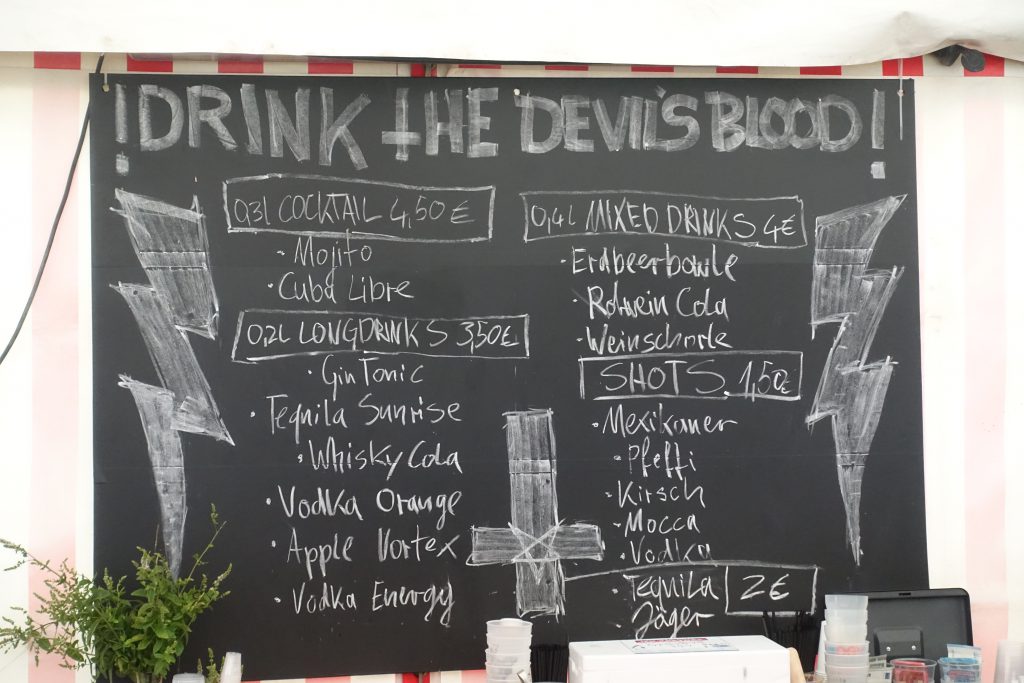 !DRINK THE DEVIL'S BLOOD!
0,3l COCKTAIL 4,50€
• Mojito
• Cuba Libre
0,2L LONGDRINKS 3,50€
• Gin Tonic
• Tequila Sunrise
• Whisky Cola
• Vodka Orange
• Apple Vortex
• Vodka Energy
0,4l MIXED DRINKS 4€
• Erdbeerbowle
• Rotwein Cola
• Weinschorle
SHOTS 1,50€
• Mexikaner
• Pfeffi
• Kirsch
• Mocca
• Vodka
• Tequila 2€
Jäger